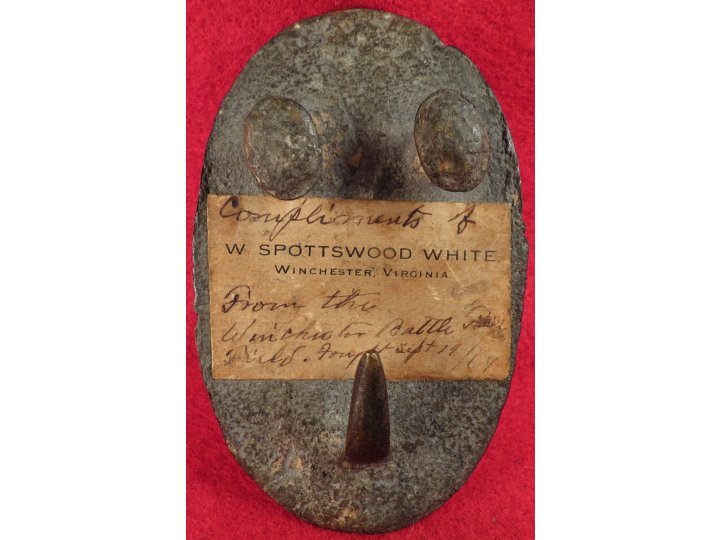 Compliments of
W. SPOTTSWOOD WHITE
WINCHESTER, VIRGINIA
From the
Winchester Battle
Field. Fought Sept 19/64